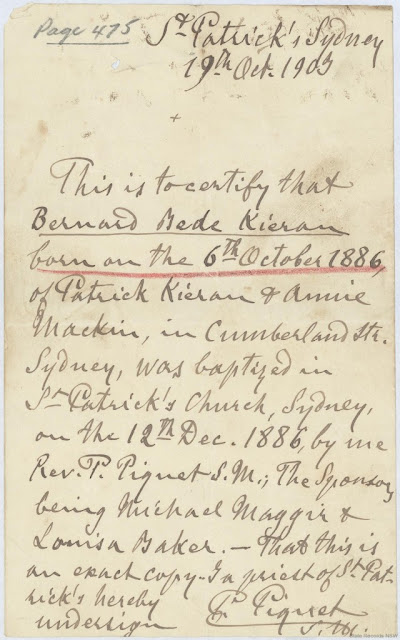 Page 475
St. Patrick's Sydney
19th Oct. 1905
+
This is to certify that
Bernard Bede Kieran
born on the 6th October 1886,
of Patrick Kieran & Annie
Mackin, in Cumberland Str.
Sydney, was baptized in
St Patrick's Church, Sydney,
on the 12th Dec. 1886, by me
Rev. P. Piquet S.M.; The Sponsors
being Michael Maggir &
Louisa Baker. — That this is
an exact copy I a priest of St. Pat-
rick's hereby
undersign P. Piquet
S.M.